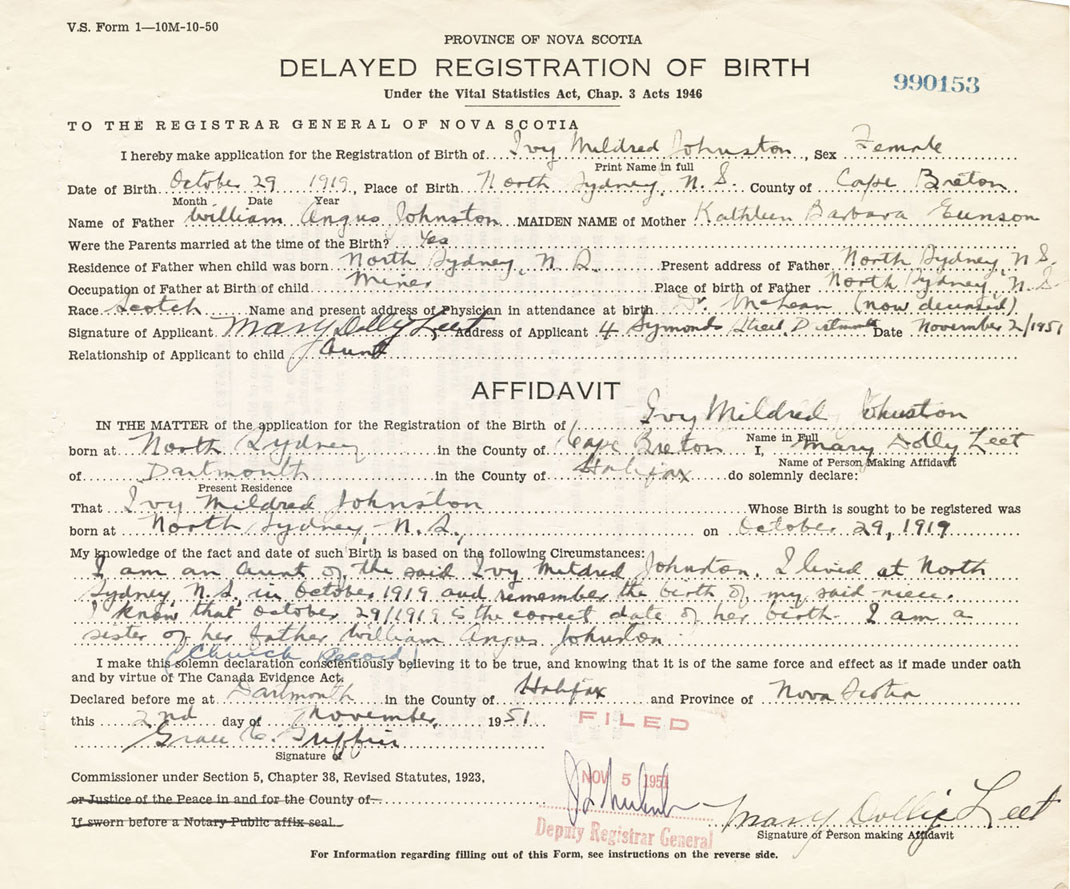 V.S. Form 1—10M-10-50
PROVINCE OF NOVA SCOTIA
DELAYED REGISTRATION OF BIRTH
990153
Under the Vital Statistics Act, Chap. 3 Acts 1946
TO THE REGISTRAR GENERAL OF NOVA SCOTIA
I hereby make application for the Registration of Birth of Ivy Mildred Johnston, Sex Female
Print Name in full
Date of Birth October 29 1919, Place of Birth North Sydney, N.S. County of Cape Breton
Month Date Year
Name of Father William Angus Johnston MAIDEN NAME of Mother Kathleen Barbara Eunson
Were the Parents married at the time of the Birth? Yes
Residence of Father when child was born North Sydney, N.S. Present address of Father North Sydney, N.S.
Occupation of Father at Birth of child Miner Place of birth of Father North Sydney, N.S.
Race Scotch Name and present address of Physician in attendance at birth Dr. McLean (now deceased)
Signature of Applicant Mary Dolly Leet Address of Applicant 4 Symonds Street, Dartmouth Date November 2/1951
Relationship of Applicant to child Aunt
AFFIDAVIT
IN THE MATTER of the application for the Registration of the Birth of Ivy Mildred Johnston
Name in Full
born at North Sydney in the County of Cape Breton I, Mary Dolly Leet
Name of Person Making Affidavit
of Dartmouth in the County of Halifax do solemnly declare:
Present Residence
That Ivy Mildred Johnston Whose Birth is sought to be registered was
born at North Sydney, N.S., on October 29, 1919
My knowledge of the fact and date of such Birth is based on the following Circumstances:
I am an Aunt of the said Ivy Mildred Johnston. I lived at North
Sydney, N.S., in October 1919 and remember the birth of my said niece.
I know that October 29/1919 is the correct date of her birth. I am a
sister of her father William Angus Johnston.
(Church Record)
I make this solemn declaration conscientiously believing it to be true, and knowing that it is of the same force and effect as if made under oath
and by virtue of The Canada Evidence Act.
Declared before me at Dartmouth in the County of Halifax and Province of Nova Scotia
this 2nd day of November 1951
FILED
Grace C. Griffin
Signature of
Commissioner under Section 5, Chapter 38, Revised Statutes, 1923,
NOV 5 1951
or Justice of the Peace in and for the County of
Mary Dollie Leet
If sworn before a Notary Public affix seal.
Deputy Registrar General
Signature of Person making Affidavit
For Information regarding filling out of this Form, see instructions on the reverse side.